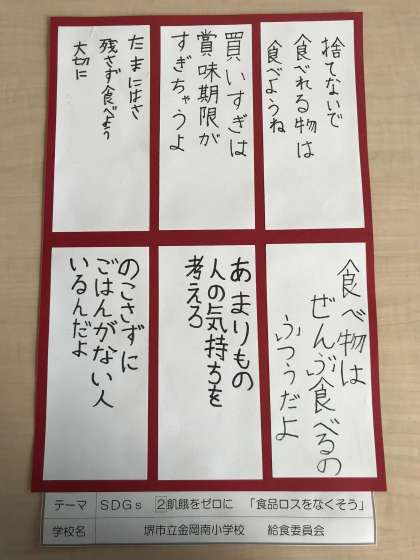 捨てないで
食べれる物は
食べようね
買いすぎは
賞味期限が
すぎちゃうよ
たまにはさ
残さず食べよう
大切に
食べ物は
ぜんぶ食べるの
ふつうだよ
あまりもの
人の気持ちを
考えろ
のこさずに
ごはんがない人
いるんだよ
テーマ SDGs 2飢餓をゼロに 「食品ロスをなくそう」
学校名 堺市立金岡南小学校 給食委員会